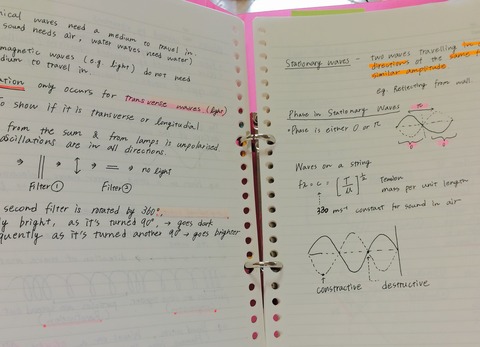 nical waves need a medium to travel in.
sound needs air, water waves need water)
magnetic waves (e.g. light) do not need
dium to travel in.
ation only occurs for transverse waves (light)
To show if it is transverse or longitudial
from the sun & from lamps is unpolarised
oscillations are in all directions.
→ || → ↕ → = → no light
Filter ① Filter ②
second filter is rotated by 360°.
y bright, as it's turned 90°, → goes dark
quently as it's turned another 90° → goes brighter
Stationary Waves - two waves travelling in
directions of the same f
similar amplitude
eg. Reflecting from wall.
Phase in Stationary Waves
• Phase is either 0 or π
π
0 0
Waves on a string
fλ = c = [T/μ]^½ Tension
mass per unit length
330 ms⁻¹ constant for sound in air
constractive destructive